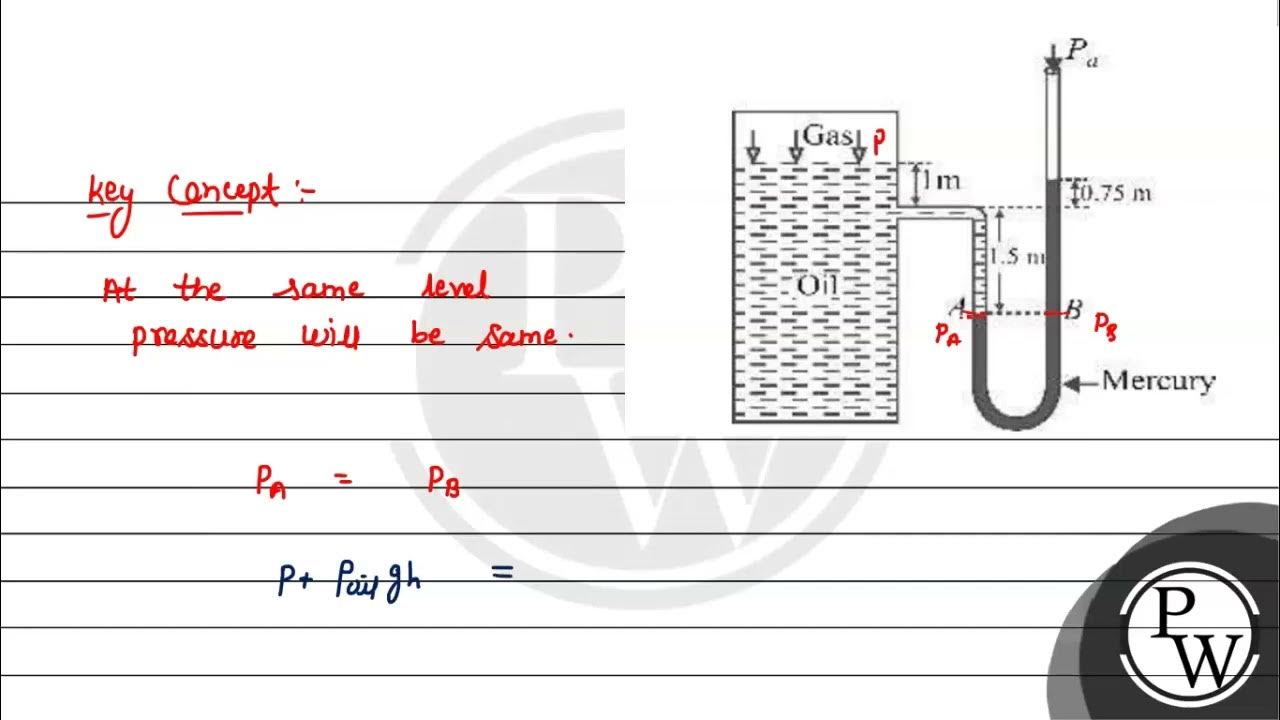 Key Concept :-
At the same level
pressure will be same.
P_A = P_B
P + ρ_oil gh =
P_a
Gas P
1m
0.75 m
1.5 m
Oil
A B
P_A P_B
Mercury
P
W
P
W